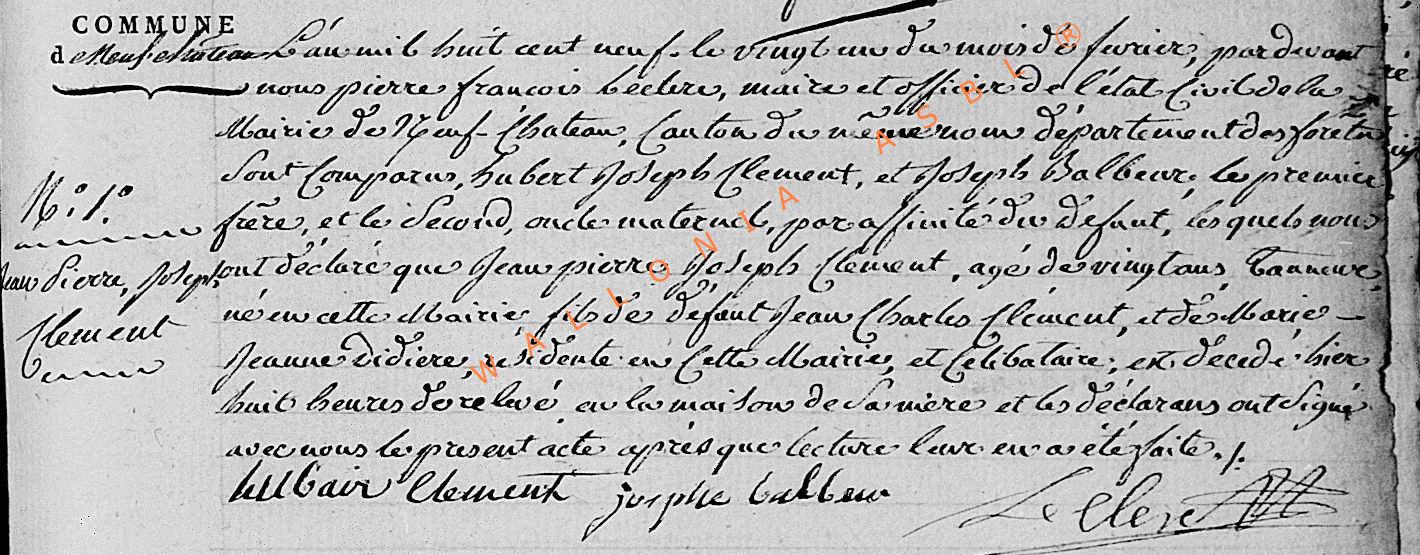 COMMUNE
de Neufchateau L'an mil huit cent neuf. le vingt un du mois de fevrier, pardevant
nous pierre françois Leclerc, maire et officier de l'état Civil de la
Mairie de Neuf-Chateau, Canton du même nom département des forêts
Sont Comparus, hubert Joseph Clement, et Joseph Balbeur. le premier
N.o 1.o
frère, et le Second, oncle maternel, par affinité du défunt, lesquels nous
Jean Pierre, Joseph
ont déclaré que Jean pierre Joseph Clement, agé de vingt ans, Tanneur,
né en cette Mairie, fils de défunt Jean Charles Clément, et de Marie
Clement
Jeanne Didiere, résidente en Cette Mairie, et Celibataire, est décedé hier
huit heures de relevé en la maison de Sa mère et les déclarans ont Signé
avec nous le present acte après que lecture leur en a été faite ./.
Clement josephe balbeur Leclerc
WALLONIA ASBL ®